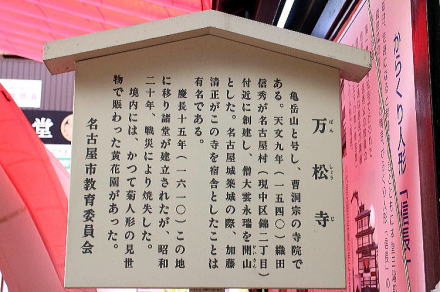 万松寺
ばんしょうじ
亀岳山と号し、曹洞宗の寺院で
ある。天文九年（一五四〇）織田
信秀が名古屋村（現中区錦二丁目）
付近に創建し、僧大雲永瑞を開山
とした。名古屋城築城の際、加藤
清正がこの寺を宿舎としたことは
有名である。
慶長十五年（一六一〇）この地
に移り諸堂が建立されたが、昭和
二十年、戦災により焼失した。
境内には、かつて菊人形の見世
物で賑わった黄花園があった。
名古屋市教育委員会
からくり人形「信長」
堂